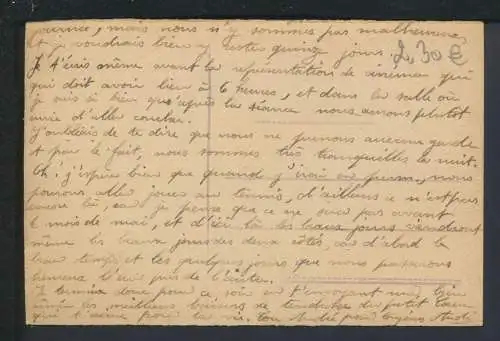 journée, mais nous n'y sommes pas malheureux
et je voudrais bien y rester quinze jours.
2,30 €
Je t'écris même avant la représentation de cinéma qui
doit avoir lieu à 6 heures, et dans la salle où
je suis si bien que d'après la séance nous aurons plutôt
envie d'aller coucher.
J'oubliais de te dire que nous ne prenons aucune garde
et par le fait, nous sommes très tranquilles la nuit.
Oh! j'espère bien que quand j'irai en perm, nous
pourrons aller jouer au tennis, d'ailleurs ce n'est pas
encore là, car je pense que ce ne sera pas avant
le mois de mai, et d'ici là les beaux jours viendront
même les beaux jours des deux côtés, car d'abord le
beau temps et les quelques jours que nous passerons
heureux l'un près de l'autre.
Je termine donc pour ce soir en t'envoyant ma bien
aimée les meilleurs baisers de tendresse du petit
qui t'aime pour la vie. Ton André pour toujours André